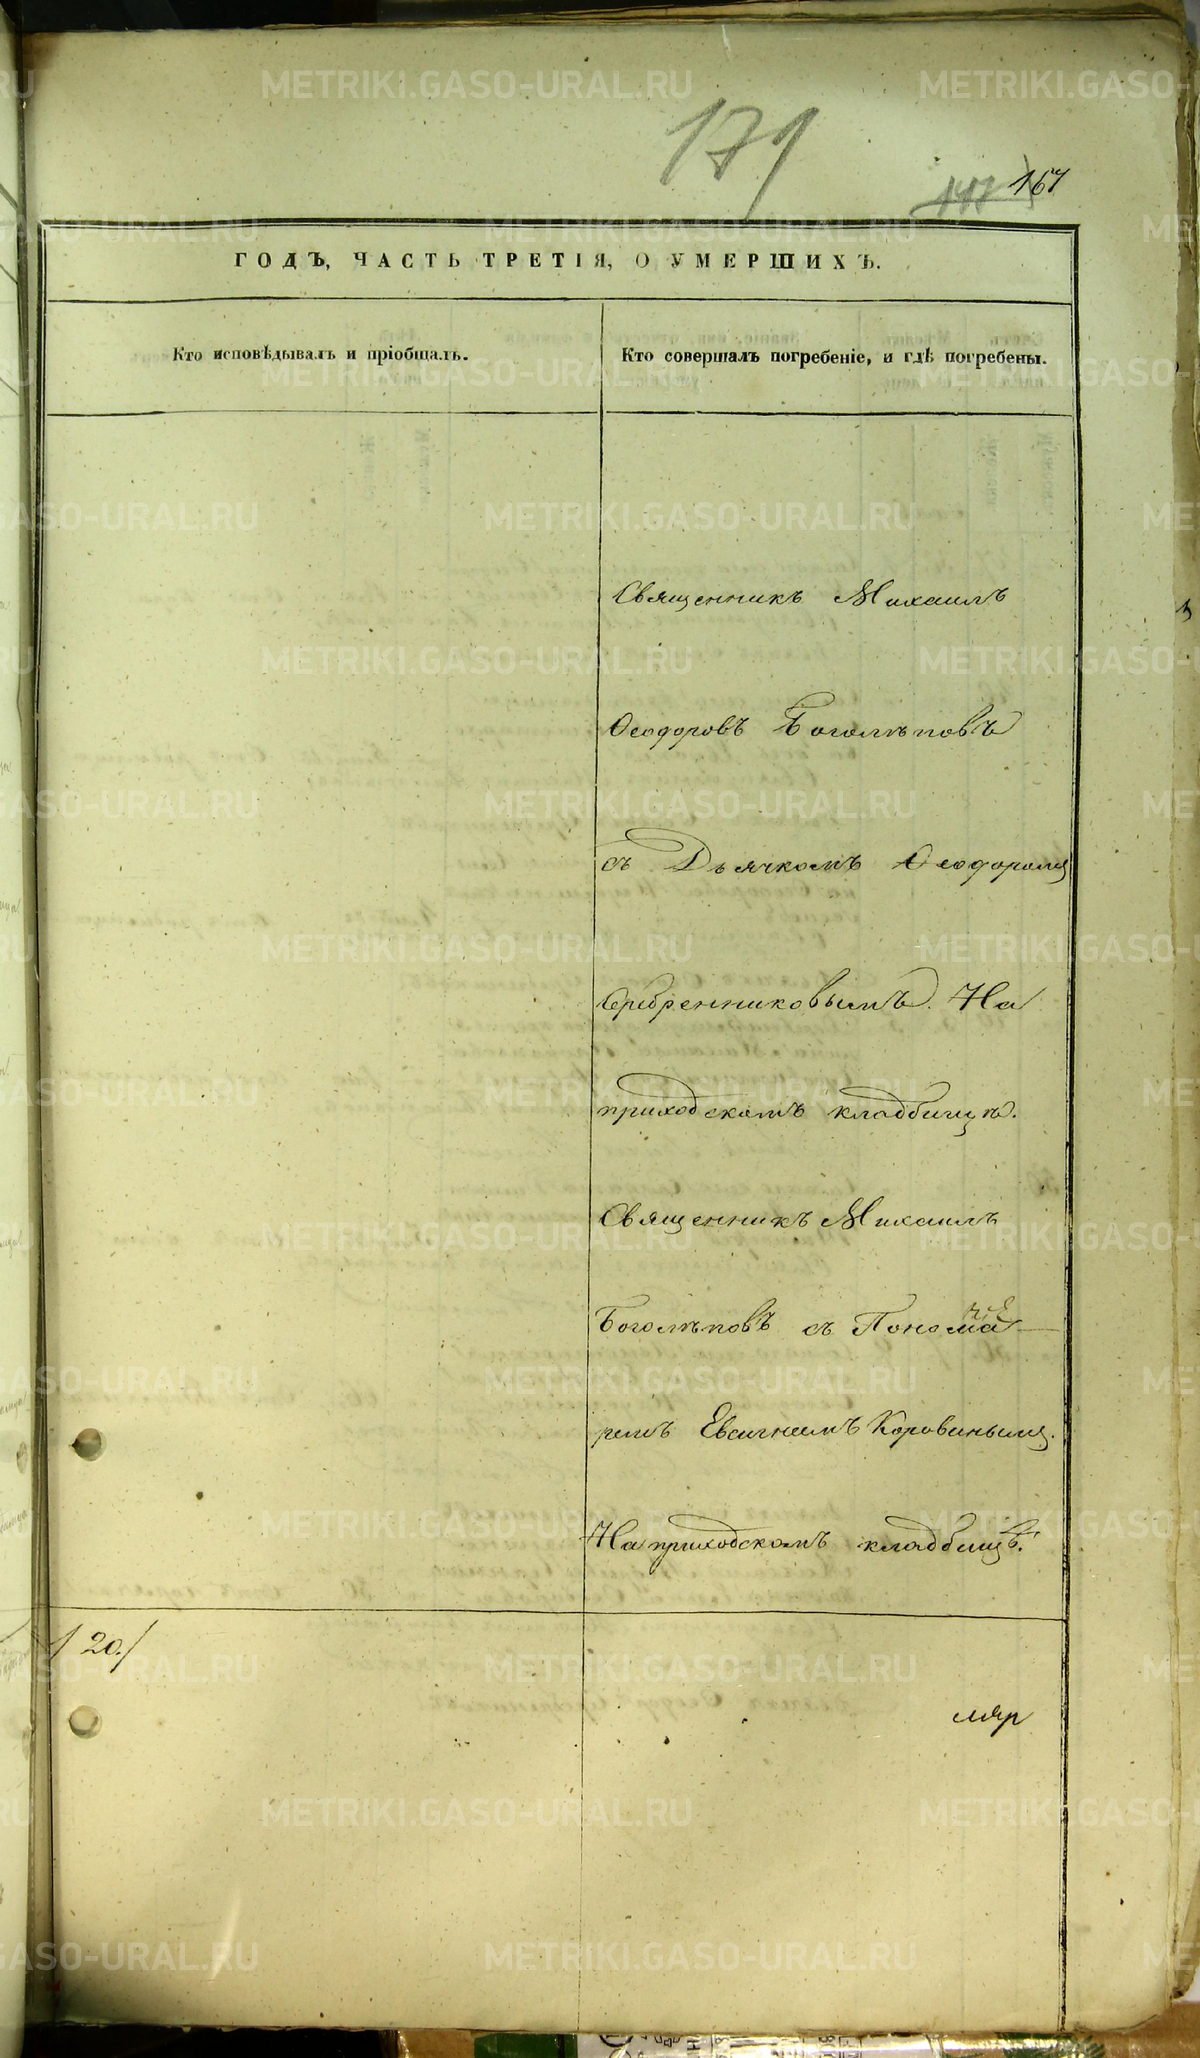 179
167
ГОДЪ, ЧАСТЬ ТРЕТІЯ, О УМЕРШИХЪ.
Кто исповѣдывалъ и пріобщалъ.
Кто совершалъ погребеніе, и гдѣ погребены.
Священникъ Михаилъ
Ѳеодоровъ Боголѣповъ
съ Дьячкомъ Ѳеодоромъ
Серебренниковымъ. На
приходскомъ кладбищѣ.
Священникъ Михаилъ
Боголѣповъ съ Понома
ремъ Евсигнеемъ Коровинымъ.
На приходскомъ кладбищѣ.
/ 20./
METRIKI.GASO-URAL.RU